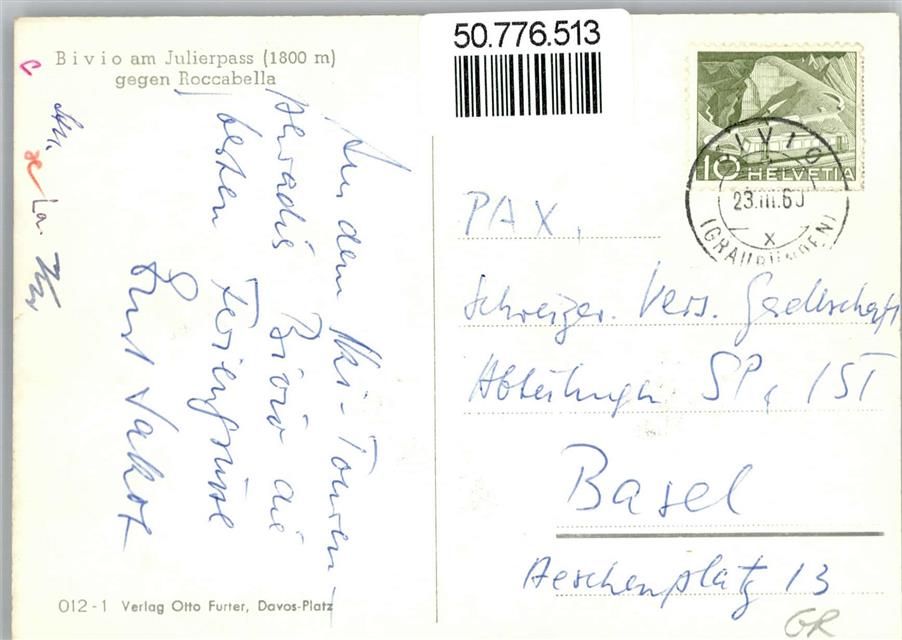 50.776.513
Bivio am Julierpass (1800 m)
gegen Roccabella
Aus dem Ski-Touren-
paradis Bivio die
besten Feriengrüsse
Ernst Jakob
10 HELVETIA
BIVIO
23.III.60
x
(GRAUBÜNDEN)
PAX,
Schweizer. Vers. Gesellschaft
Abteilungen SP, IST
Basel
Aeschenplatz 13
GR
012-1 Verlag Otto Furter, Davos-Platz